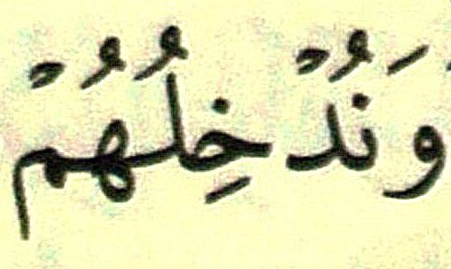 وَنُدْخِلُهُمْ